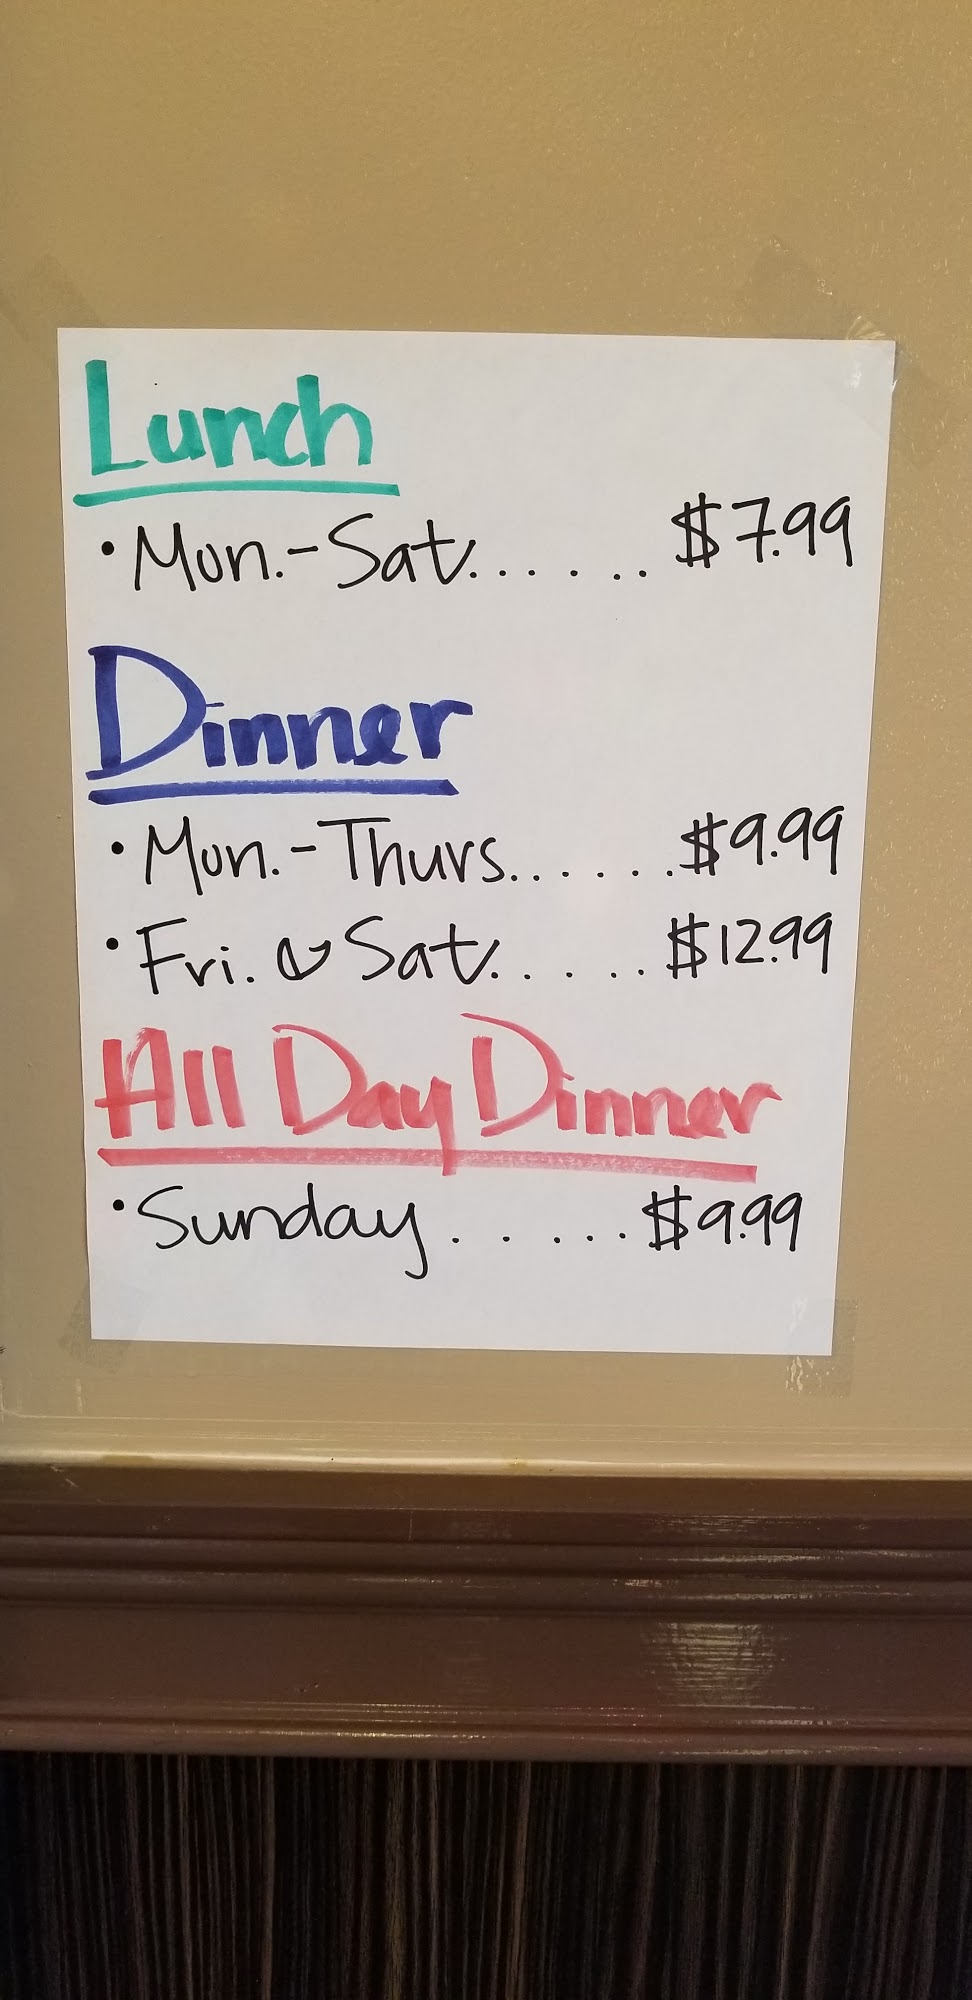 Lunch
• Mon.-Sat. . . . . . $7.99
Dinner
• Mon.-Thurs. . . . . . . $9.99
• Fri. & Sat. . . . . . $12.99
All Day Dinner
• Sunday . . . . . . $9.99